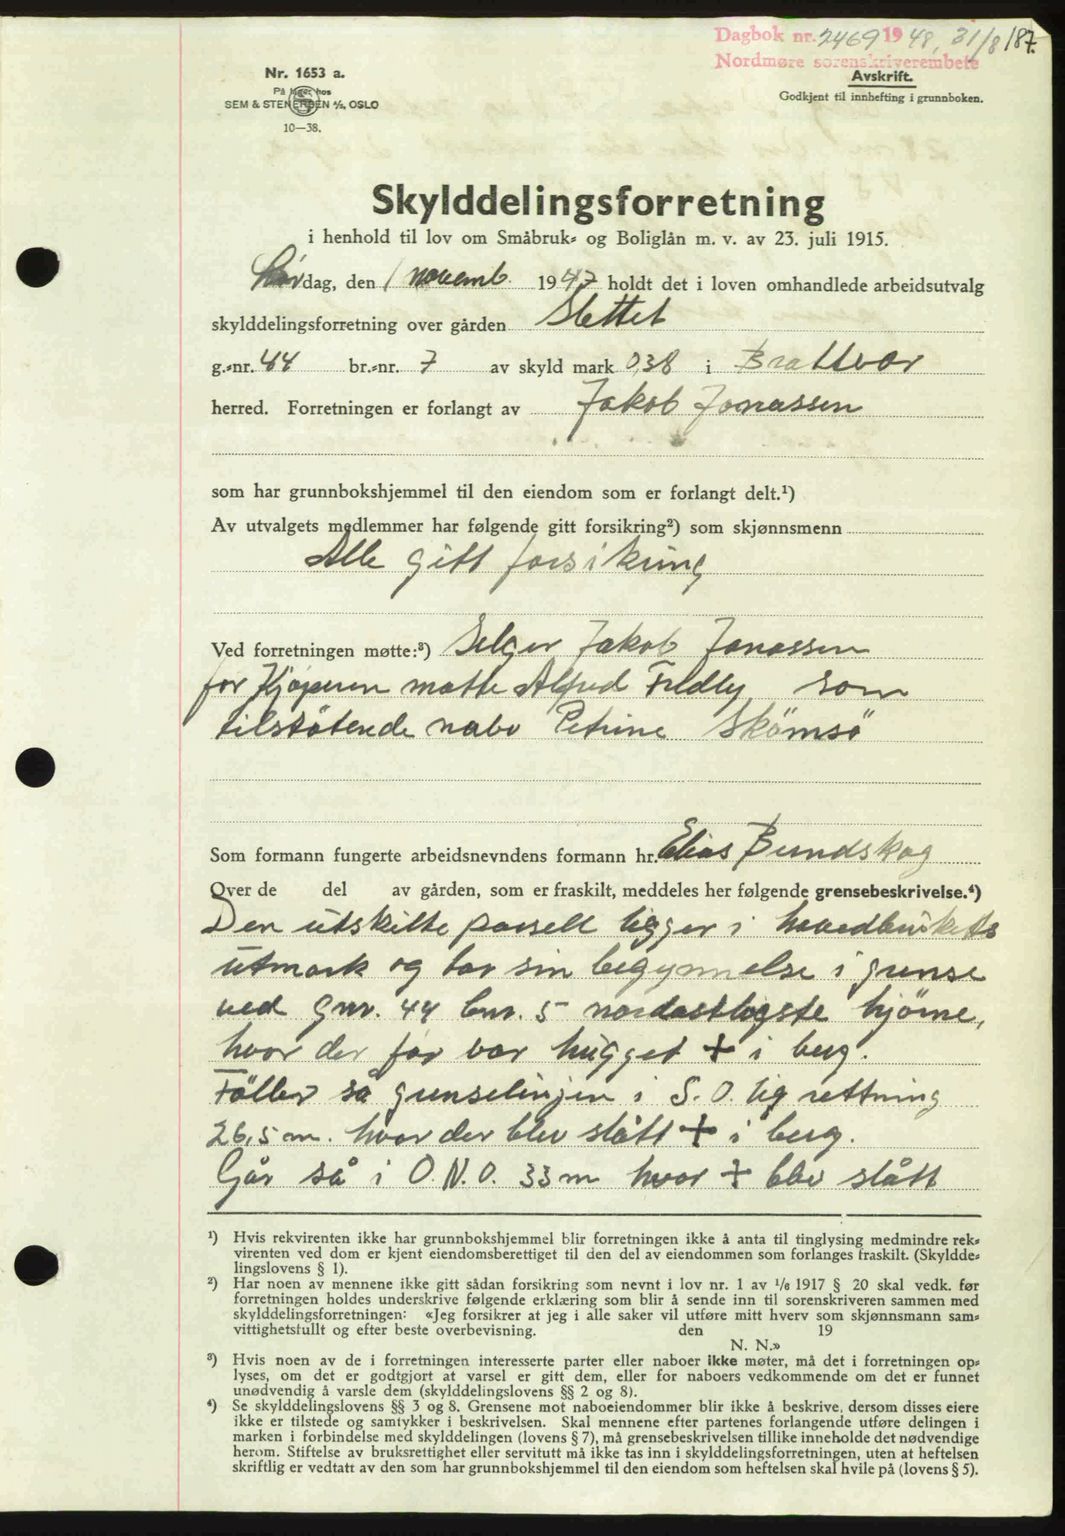 Dagbok nr. 2469 1948, 31/8 187.
Nordmøre sorenskriverembete
Nr. 1653 a.
På lager hos
SEM & STENERSEN A/S, OSLO
10—38.
Avskrift.
Godkjent til innhefting i grunnboken.
Skylddelingsforretning
i henhold til lov om Småbruk- og Boliglån m. v. av 23. juli 1915.
Lørdag, den 1 novemb. 1947 holdt det i loven omhandlede arbeidsutvalg
skylddelingsforretning over gården Slettet
g.-nr. 44 br.-nr. 7 av skyld mark 0,38 i Brattvær
herred. Forretningen er forlangt av Jakob Jonassen
som har grunnbokshjemmel til den eiendom som er forlangt delt.¹)
Av utvalgets medlemmer har følgende gitt forsikring²) som skjønnsmenn
Alle gitt forsikring
Ved forretningen møtte:³) Selger Jakob Jonassen
for Kjøperen møtte Alfred Fredly som
tilstøtende nabo Petrine Skömsö
Som formann fungerte arbeidsnevndens formann hr. Elias Bundskog
Over de del av gården, som er fraskilt, meddeles her følgende grensebeskrivelse.⁴)
Den utskilte parsell ligger i hovedbrukets
utmark og tar sin begynnelse i grense
ved gnr. 44 bnr. 5 nordøstligste hjørne,
hvor der før var hugget + i berg.
Föller så grenselinjen i S. O. lig rettning
26,5 m. hvor der blev slått + i berg.
Går så i O. N. O. 33 m hvor + blev slått
¹) Hvis rekvirenten ikke har grunnbokshjemmel blir forretningen ikke å anta til tinglysing medmindre rek-
virenten ved dom er kjent eiendomsberettiget til den del av eiendommen som forlanges fraskilt. (Skyldde-
lingslovens § 1).
²) Har noen av mennene ikke gitt sådan forsikring som nevnt i lov nr. 1 av 1/6 1917 § 20 skal vedk. før
forretningen holdes underskrive følgende erklæring som blir å sende inn til sorenskriveren sammen med
skylddelingsforretningen: «Jeg forsikrer at jeg i alle saker vil utføre mitt hverv som skjønnsmann sam-
vittighetsfullt og efter beste overbevisning. den 19
N. N.»
³) Hvis noen av de i forretningen interesserte parter eller naboer ikke møter, må det i forretningen op-
lyses, om det er godtgjort at varsel er gitt dem, eller for naboers vedkommende om det er funnet
unødvendig å varsle dem (skylddelingslovens §§ 2 og 8).
⁴) Se skylddelingslovens §§ 3 og 8. Grensene mot naboeiendommer blir ikke å beskrive, dersom disses eiere
ikke er tilstede og samtykker i beskrivelsen. Skal mennene efter partenes forlangende utføre delingen i
marken i forbindelse med skylddelingen (lovens § 7), må grensebeskrivelsen tillike inneholde det nødvendige
herom. Stiftelse av bruksrettighet eller servitutt må ikke tas inn i skylddelingsforretningen, uten at heftelsen
skriftlig er vedtatt av den som har grunnbokshjemmel til den eiendom som heftelsen skal hvile på (lovens § 5).